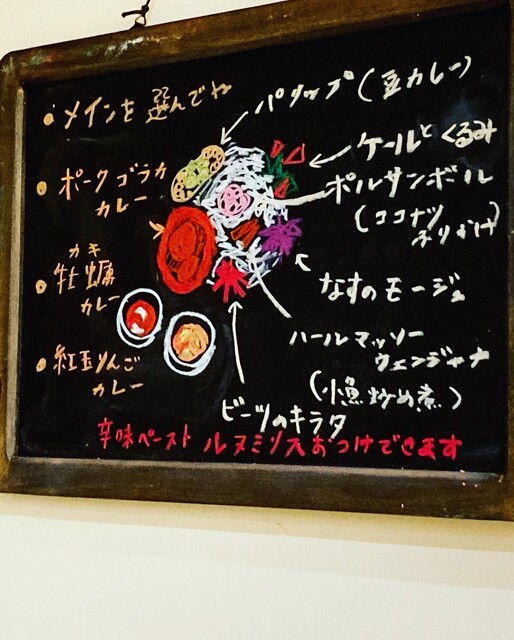 ・メインを選んでね
・ポークゴラカ
カレー
カキ
・牡蠣
カレー
・紅玉りんご
カレー
パリップ(豆カレー)
ケールとくるみ
ポルサンボール
(ココナツ
ふりかけ)
なすのモージュ
ハールマッソー
ウェンジャナ
(小魚炒め煮)
ビーツのキラタ
辛味ペースト ルヌミリスおつけできます